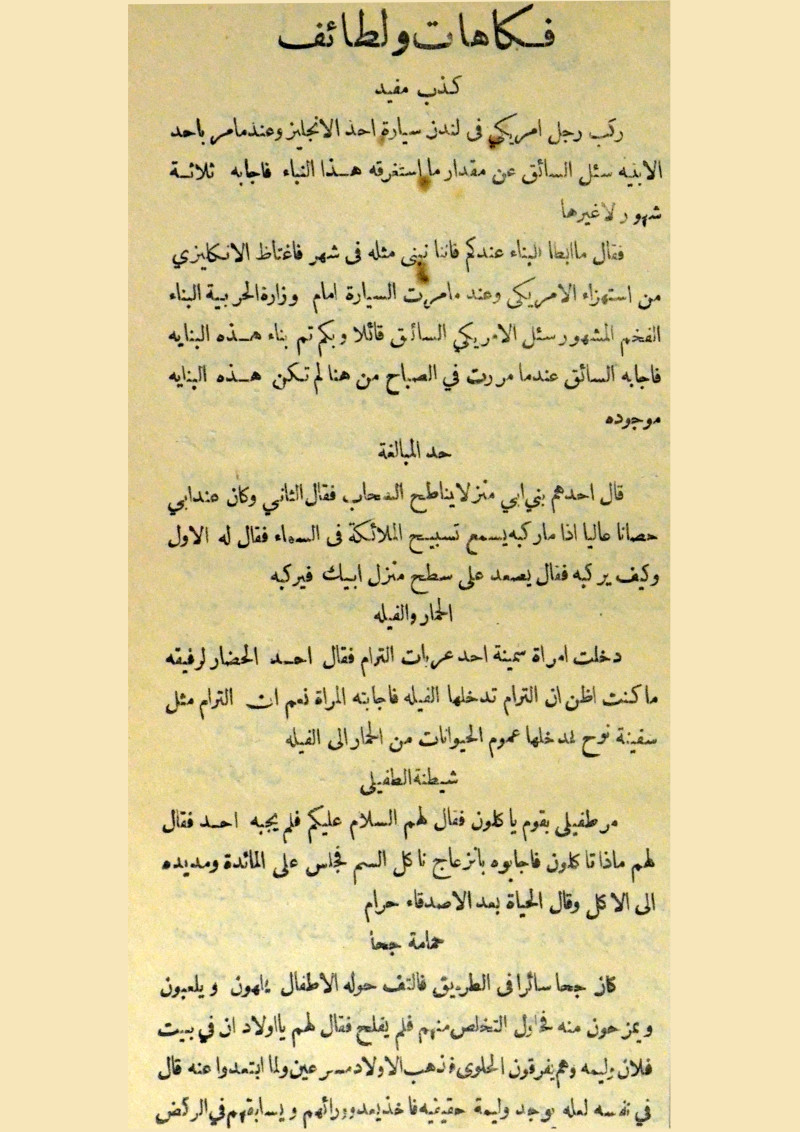 فكاهات ولطائف
كذب مفيد
ركب رجل امريكي فى لندن سيارة احد الانجليز وعندما مر باحد
الابنيه سئل السائق عن مقدار ما استغرقه هذا النباء فاجابه ثلاثة
شهور لاغيرها
فقال ما ابطا البناء عندكم فاننا نبنى مثله فى شهر فاغتاظ الانكليزي
من استهزاء الامريكى وعند مامرت السيارة امام وزارة الحربية البناء
الفخم المشهور سئل الامريكي السائق قائلا وبكم تم بناء هذه البنايه
فاجابه السائق عندما مررت في الصباح من هنا لم تكن هذه البنايه
موجوده
حد المبالغة
قال احدهم بني ابي منزلا يناطح السحاب فقال الثاني وكان عند ابي
حصانا عاليا اذا ماركبه يسمع تسبيح الملائكة فى السماء فقال له الاول
وكيف يركبه فقال يصعد على سطح منزل ابيك فيركبه
الحمار والفيله
دخلت امراة سمينة احد عربات الترام فقال احد الحضار لرفيقه
ما كنت اظن ان الترام تدخلها الفيله فاجابته المراة نعم ان الترام مثل
سفينة نوح تدخلها عموم الحيوانات من الحمار الى الفيله
شيطنة الطفيلى
مر طفيلى بقوم ياكلون فقال لهم السلام عليكم فلم يجبه احد فقال
لهم ماذا تاكلون فاجابوه بانزعاج ناكل السم فجلس على المائدة ومد يده
الى الاكل وقال الحياة بعد الاصدقاء حرام
حمامة جحا
كان جحا سائرا فى الطريق فالتف حوله الاطفال يلهون ويلعبون
ويمزحون منه فحاول التخلص منهم فلم يفلح فقال لهم يا اولاد ان في بيت
فلان وليمه وهم يفرقون الحلوى فذهب الاولاد مسرعين ولما ابتعدوا عنه قال
في نفسه لعله يوجد وليمة حقيقيه فاخذ يعدو ورائهم ويسابقهم في الركض